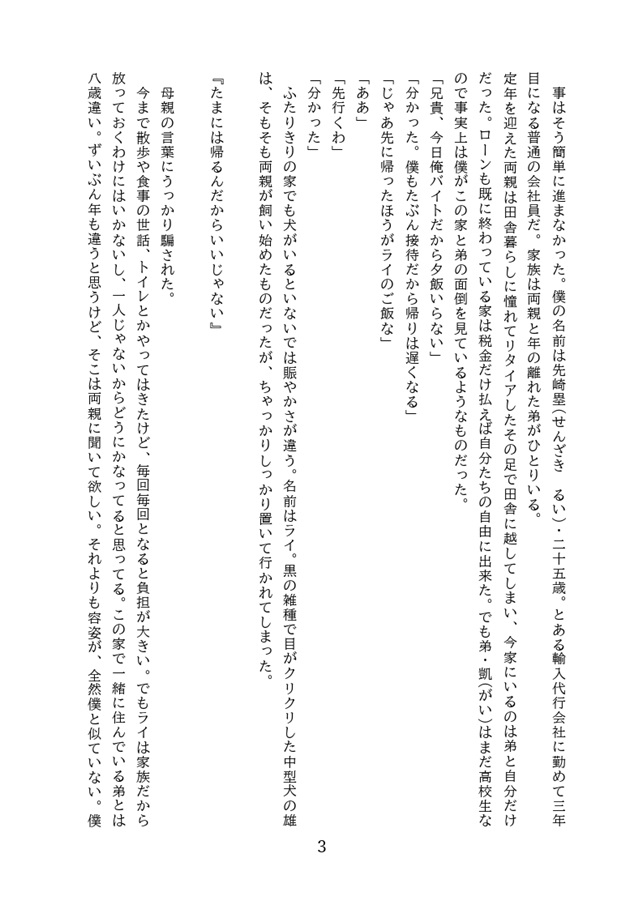 事はそう簡単に進まなかった。僕の名前は先崎塁（せんざき　るい）・二十五歳。とある輸入代行会社に勤めて三年
目になる普通の会社員だ。家族は両親と年の離れた弟がひとりいる。
定年を迎えた両親は田舎暮らしに憧れてリタイアしたその足で田舎に越してしまい、今家にいるのは弟と自分だけ
だった。ローンも既に終わっている家は税金だけ払えば自分たちの自由に出来た。でも弟・凱（がい）はまだ高校生な
ので事実上は僕がこの家と弟の面倒を見ているようなものだった。
「兄貴、今日俺バイトだから夕飯いらない」
「分かった。僕もたぶん接待だから帰りは遅くなる」
「じゃあ先に帰ったほうがライのご飯な」
「ああ」
「先行くわ」
「分かった」
　ふたりきりの家でも犬がいるといないでは賑やかさが違う。名前はライ。黒の雑種で目がクリクリした中型犬の雄
は、そもそも両親が飼い始めたものだったが、ちゃっかりしっかり置いて行かれてしまった。
『たまには帰るんだからいいじゃない』
　母親の言葉にうっかり騙された。
　今まで散歩や食事の世話、トイレとかやってはきたけど、毎回毎回となると負担が大きい。でもライは家族だから
放っておくわけにはいかないし、一人じゃないからどうにかなってると思ってる。この家で一緒に住んでいる弟とは
八歳違い。ずいぶん年も違うと思うけど、そこは両親に聞いて欲しい。それよりも容姿が、全然僕と似ていない。僕
3